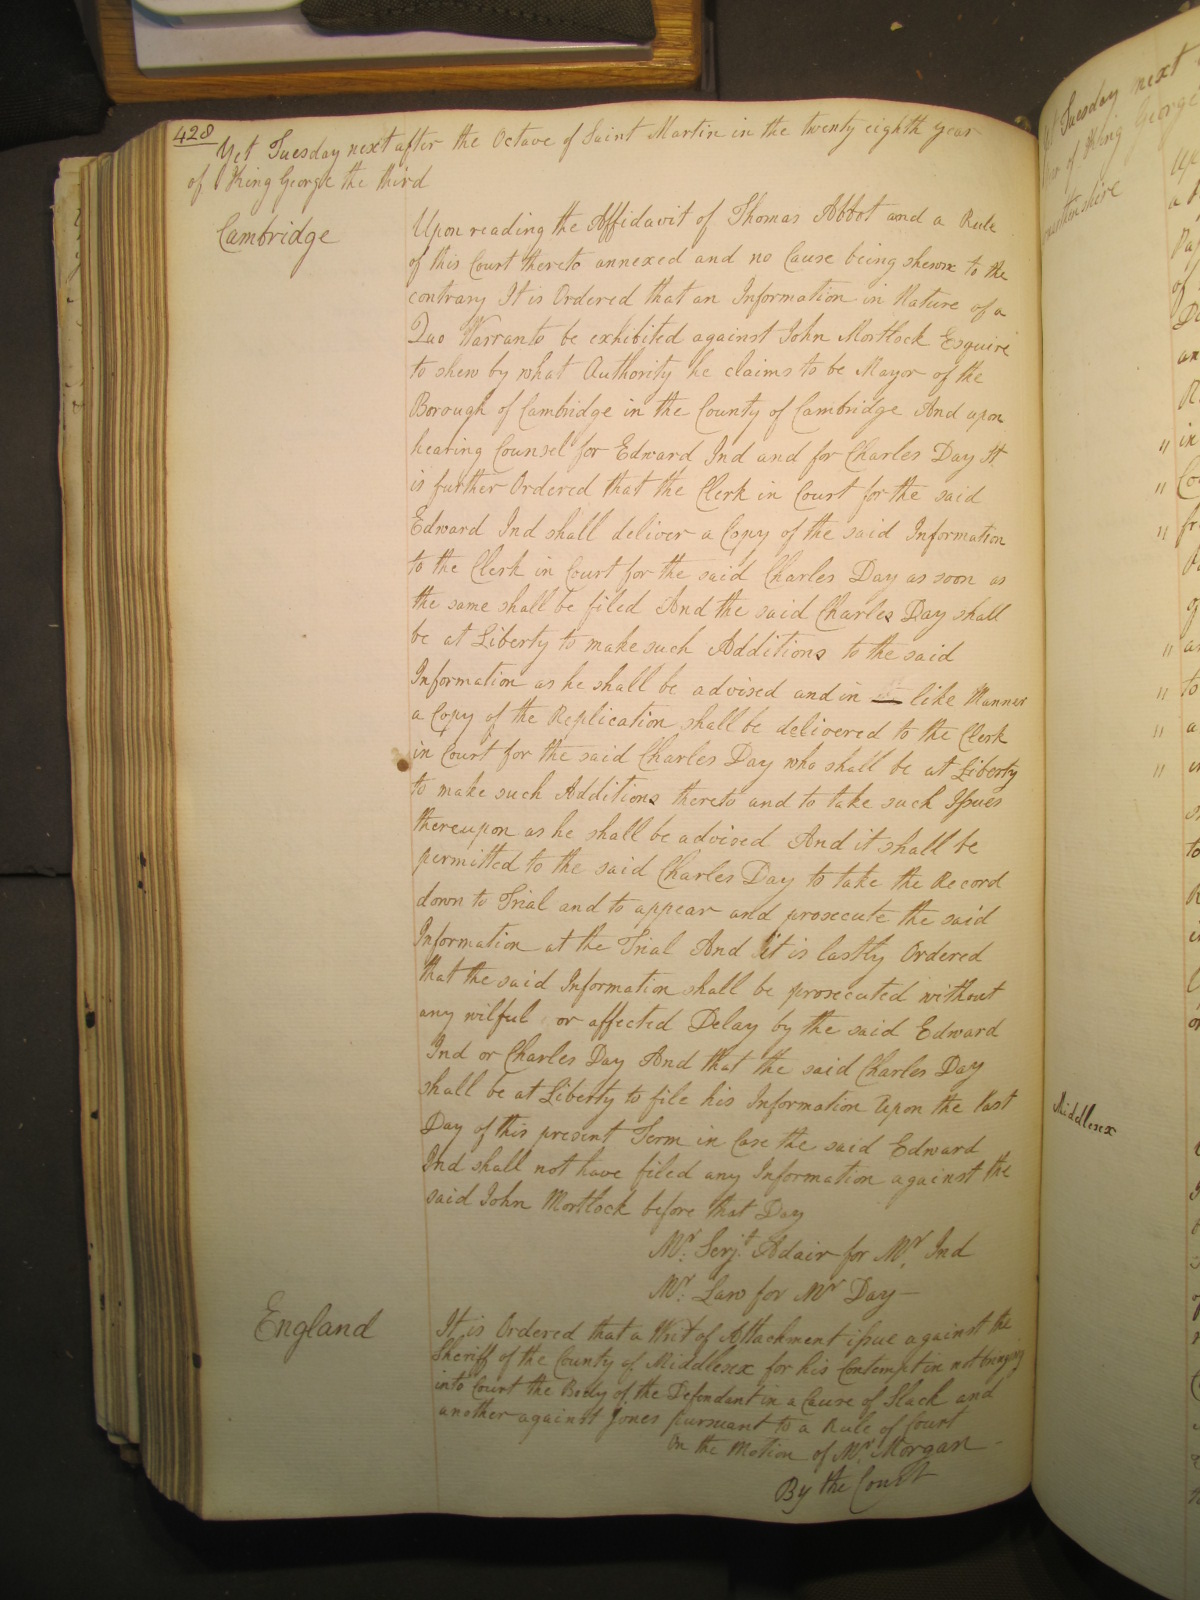 428
Yet Tuesday next after the Octave of Saint Martin in the twenty eighth year
of King George the third
Cambridge
Upon reading the Affidavit of Thomas Abbot and a Rule
of this Court thereto annexed and no Cause being shewn to the
contrary It is Ordered that an Information in Nature of a
Quo Warranto be exhibited against John Mortlock Esquire
to shew by what Authority he claims to be Mayor of the
Borough of Cambridge in the County of Cambridge And upon
hearing Counsel for Edward Ind and for Charles Day It
is further Ordered that the Clerk in Court for the said
Edward Ind shall deliver a Copy of the said Information
to the Clerk in Court for the said Charles Day as soon as
the same shall be filed And the said Charles Day shall
be at Liberty to make such Additions to the said
Information as he shall be advised and in like Manner
a Copy of the Replication shall be delivered to the Clerk
in Court for the said Charles Day who shall be at Liberty
to make such Additions thereto and to take such Issues
thereupon as he shall be advised And it shall be
permitted to the said Charles Day to take the Record
down to Trial and to appear and prosecute the said
Information at the Trial And it is lastly Ordered
that the said Information shall be prosecuted without
any wilful or affected Delay by the said Edward
Ind or Charles Day And that the said Charles Day
shall be at Liberty to file his Information Upon the last
Day of this present Term in Case the said Edward
Ind shall not have filed any Information against the
said John Mortlock before that Day
Mr. Serjt. Adair for Mr. Ind
Mr. Law for Mr Day —
England
It is Ordered that a Writ of Attachment issue against the
Sheriff of the County of Middlesex for his Contempt in not bringing
into Court the Body of the Defendant in a Cause of Slack and
another against Jones pursuant to a Rule of Court
On the Motion of Mr. Morgan -
By the Court
Tuesday next
of King George
Middlesex